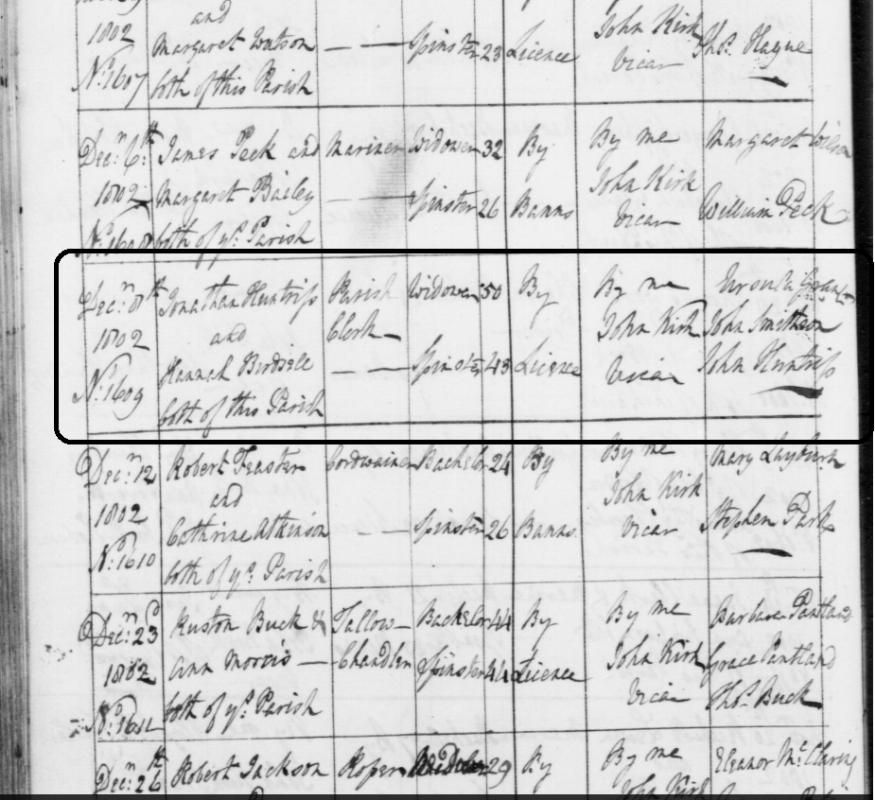 and
1802 Margaret Watson — — Spinster 23 Licence John Kirk Thos. Hague
No. 1607 both of this Parish Vicar
Decr. 6th James Peck and Mariner Widower 32 By By me Margaret Wilson
1802 Margaret Bailey — Spinster 26 Banns John Kirk William Peck
No. 1608 both of ys. Parish Vicar
Decr. 8th Jonathan Huntriss Parish Widower 50 By By me
1802 and Clerk — John Kirk John Smithson
No. 1609 Hannah Birdsell — — Spinstr 43 Licence Vicar John Huntriss
both of this Parish
Decr. 12 Robert Feaster Cordwainer Bachelor 24 By By me Mary Layburn
1802 and John Kirk
No. 1610 Cathrine Atkinson — — Spinster 26 Banns Vicar Stephen Park
both of ys. Parish
Decr. 23d Ruston Buck & Tallow — Bachelor 44 By By me Barbara Pantland
1802 Ann Morris — Chandler Spinster 44 Licence John Kirk Grace Pantland
No. 1611 both of ys. Parish Vicar Thos. Buck
Decr. 26th Robert Jackson Roper 29 By By me Eleanor
John Kirk